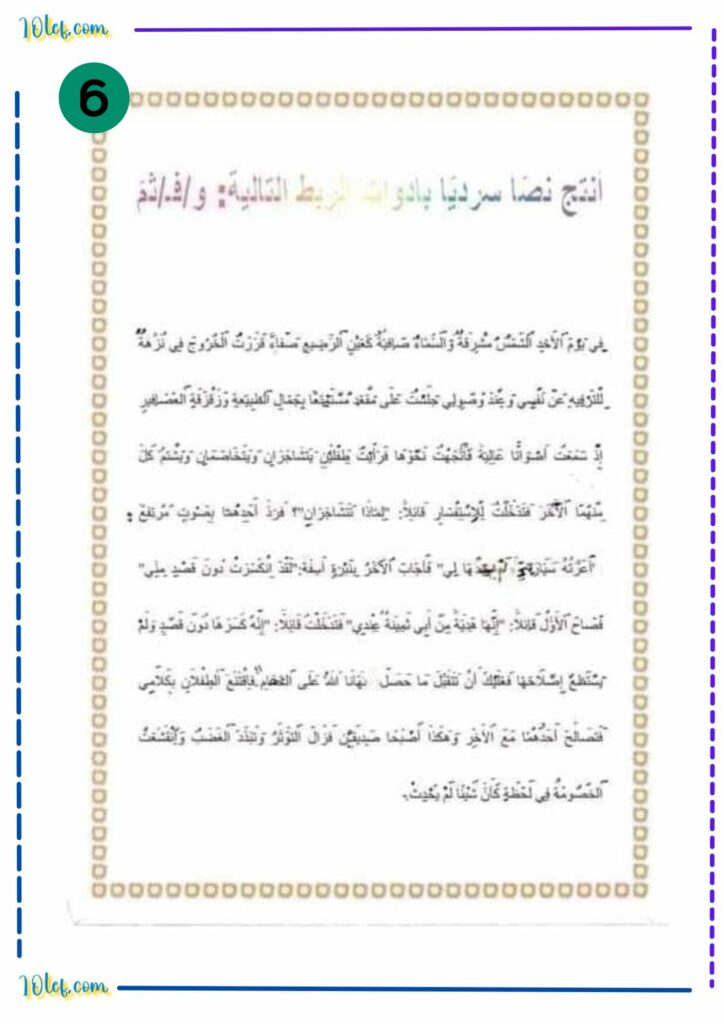 10lef.com
6
أنتج نصًا سرديًا بأدوات الربط التالية: و/فـ/ثمّ
فِي يَوْمِ الأَحَدِ الشَّمْسُ مُشْرِقَةٌ وَالسَّمَاءُ صَافِيَةٌ كَعَيْنِ الرَّضِيعِ صَفَاءً قَرَّرْتُ الْخُرُوجَ فِي نُزْهَةٍ
لِلتَّرْفِيهِ عَنْ نَفْسِي وَعِنْدَ وُصُولِي جَلَسْتُ عَلَى مَقْعَدٍ مُسْتَمْتِعًا بِجَمَالِ الطَّبِيعَةِ وَزَقْزَقَةِ الْعَصَافِيرِ
إِذْ سَمِعْتُ أَصْوَاتًا عَالِيَةً فَاتَّجَهْتُ نَحْوَهَا فَرَأَيْتُ طِفْلَيْنِ يَتَشَاجَرَانِ وَيَتَخَاصَمَانِ وَيَشْتُمُ كُلّ
مِنْهُمَا الْآخَرَ فَتَدَخَّلْتُ لِلِاسْتِفْسَارِ قَائِلًا: "لِمَاذَا تَتَشَاجَرَانِ"؟ فَرَدَّ أَحَدُهُمَا بِصَوْتٍ مُرْتَفِعٍ :
"أَعَرْتُهُ سَيَّارَتِي لَمْ يُعِدْهَا لِي" فَأَجَابَ الْآخَرُ بِنَبْرَةٍ آسِفَةٍ:"لَقَدْ اِنْكَسَرَتْ دُونَ قَصْدٍ مِنِّي"
فَصَاحَ الْأَوَّلُ قَائِلًا: "إِنَّهَا هَدِيَّةٌ مِنْ أَبِي ثَمِينَةٌ عِنْدِي" فَتَدَخَّلْتُ قَائِلًا: "إِنَّهُ كَسَرَهَا دُونَ قَصْدٍ وَلَمْ
يَسْتَطِعْ إِصْلَاحَهَا فَعَلَيْكَ أَنْ تَتَقَبَّلَ مَا حَصَلَ نَهَانَا اللهُ عَلَى الْخِصَامِ" فَاِقْتَنَعَ الطِّفْلَانِ بِكَلَامِي
فَتَصَالَحَ أَحَدُهُمَا مَعَ الْآخَرِ وَهَكَذَا أَصْبَحَا صَدِيقَيْنِ فَزَالَ التَّوَتُّرُ وَتَبَدَّدَ الْغَضَبُ وَاِنْقَشَعَتْ
الْخُصُومَةُ فِي لَحْظَةٍ كَأَنَّ شَيْئًا لَمْ يَحْدُثْ.
10lef.com